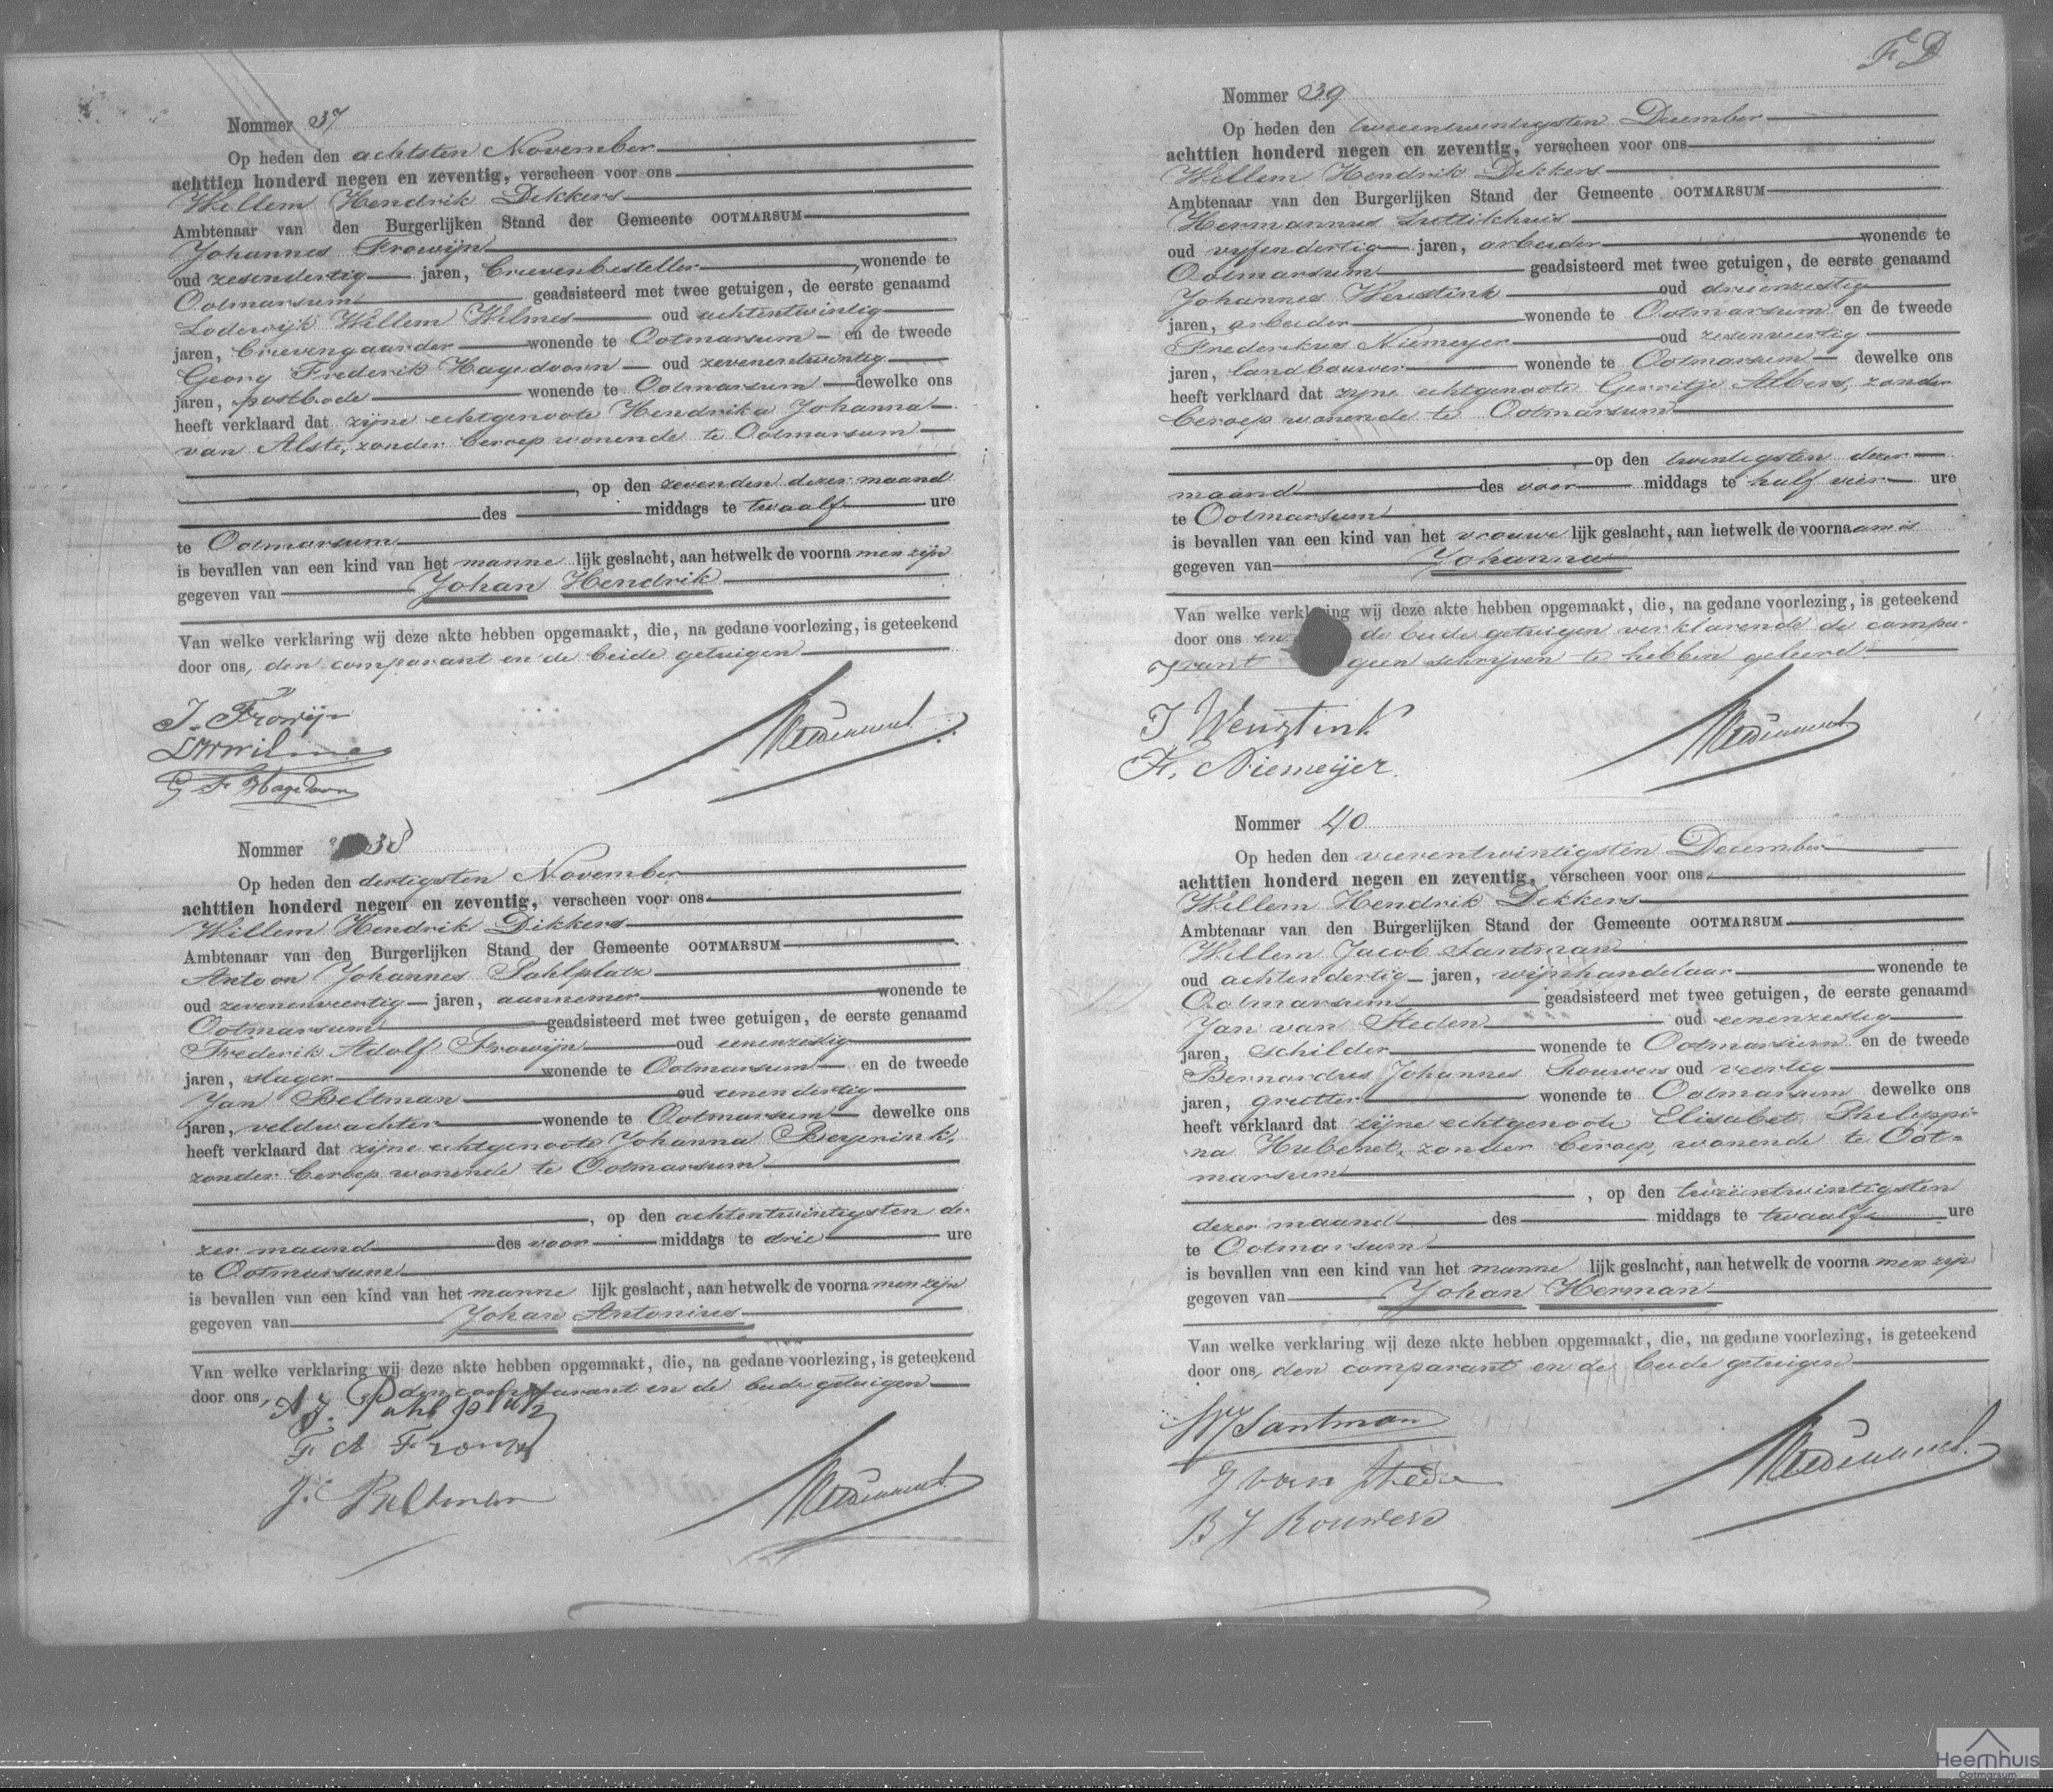 Nommer 37
Op heden den achtsten November
achttien honderd negen en zeventig, verscheen voor ons
Willem Hendrik Dikkers
Ambtenaar van den Burgerlijken Stand der Gemeente OOTMARSUM
Johannes Frowijn
oud zesendertig jaren, brievenbesteller, wonende te
Ootmarsum geadsisteerd met twee getuigen, de eerste genaamd
Lodewijk Willem Wilmes oud achtentwintig
jaren, brievengaarder wonende te Ootmarsum en de tweede
Georg Frederik Hagedoorn oud zevenentwintig
jaren, postbode wonende te Ootmarsum dewelke ons
heeft verklaard dat zijne echtgenoote Hendrika Johanna
van Alste, zonder beroep wonende te Ootmarsum
, op den zevenden dezer maand
des middags te twaalf ure
te Ootmarsum
is bevallen van een kind van het manne lijk geslacht, aan hetwelk de voorna men zijn
gegeven van Johan Hendrik
Van welke verklaring wij deze akte hebben opgemaakt, die, na gedane voorlezing, is geteekend
door ons, den comparant en de beide getuigen
J. Frowijn
LWWilmes
G F Hagedoorn
Nommer 38
Op heden den dertigsten November
achttien honderd negen en zeventig, verscheen voor ons
Willem Hendrik Dikkers
Ambtenaar van den Burgerlijken Stand der Gemeente OOTMARSUM
Antoon Johannes Pahlplatz
oud zevenenveertig jaren, aannemer wonende te
Ootmarsum geadsisteerd met twee getuigen, de eerste genaamd
Frederik Adolf Frowijn oud eenenzestig
jaren, slager wonende te Ootmarsum en de tweede
Jan Beltman oud eenendertig
jaren, veldwachter wonende te Ootmarsum dewelke ons
heeft verklaard dat zijne echtgenoote Johanna Beyerink,
zonder beroep wonende te Ootmarsum
, op den achtentwintigsten de-
zer maand des voor middags te drie ure
te Ootmarsum
is bevallen van een kind van het manne lijk geslacht, aan hetwelk de voorna men zijn
gegeven van Johan Antonius
Van welke verklaring wij deze akte hebben opgemaakt, die, na gedane voorlezing, is geteekend
door ons, den comparant en de beide getuigen
A J. Pahlplatz
F A Frowijn
J. Beltman
F D
Nommer 39
Op heden den tweeentwintigsten December
achttien honderd negen en zeventig, verscheen voor ons
Willem Hendrik Dikkers
Ambtenaar van den Burgerlijken Stand der Gemeente OOTMARSUM
Hermannus Luttikhuis
oud vyfendertig jaren, arbeider wonende te
Ootmarsum geadsisteerd met twee getuigen, de eerste genaamd
Johannes Weustink oud drieenzestig
jaren, arbeider wonende te Ootmarsum en de tweede
Frederikus Niemeyer oud zesenveertig
jaren, landbouwer wonende te Ootmarsum dewelke ons
heeft verklaard dat zijne echtgenoote Gerritje Albers, zonder
beroep wonende te Ootmarsum
, op den twintigsten dezer
maand des voor middags te half vier ure
te Ootmarsum
is bevallen van een kind van het vrouwe lijk geslacht, aan hetwelk de voornaam is
gegeven van Johanna
Van welke verklaring wij deze akte hebben opgemaakt, die, na gedane voorlezing, is geteekend
door ons en de beide getuigen verklarende de compa-
rant geen schrijven te hebben geleerd
J Weustink
F. Niemeijer.
Nommer 40
Op heden den vierentwintigsten December
achttien honderd negen en zeventig, verscheen voor ons
Willem Hendrik Dikkers
Ambtenaar van den Burgerlijken Stand der Gemeente OOTMARSUM
Willem Jacob Santman
oud achtendertig jaren, wijnhandelaar wonende te
Ootmarsum geadsisteerd met twee getuigen, de eerste genaamd
Jan van Steden oud eenenzestig
jaren, schilder wonende te Ootmarsum en de tweede
Bernardus Johannes Rouwers oud veertig
jaren, grutter wonende te Ootmarsum dewelke ons
heeft verklaard dat zijne echtgenoote Elisabet Philippi-
na Hubenet, zonder beroep, wonende te Oot-
marsum
, op den tweeentwintigsten
dezer maand des middags te twaalf ure
te Ootmarsum
is bevallen van een kind van het manne lijk geslacht, aan hetwelk de voorna men zijn
gegeven van Johan Herman
Van welke verklaring wij deze akte hebben opgemaakt, die, na gedane voorlezing, is geteekend
door ons, den comparant en de beide getuigen
WJSantman
J van Steden
B J Rouwers
Heemhuis
Ootmarsum